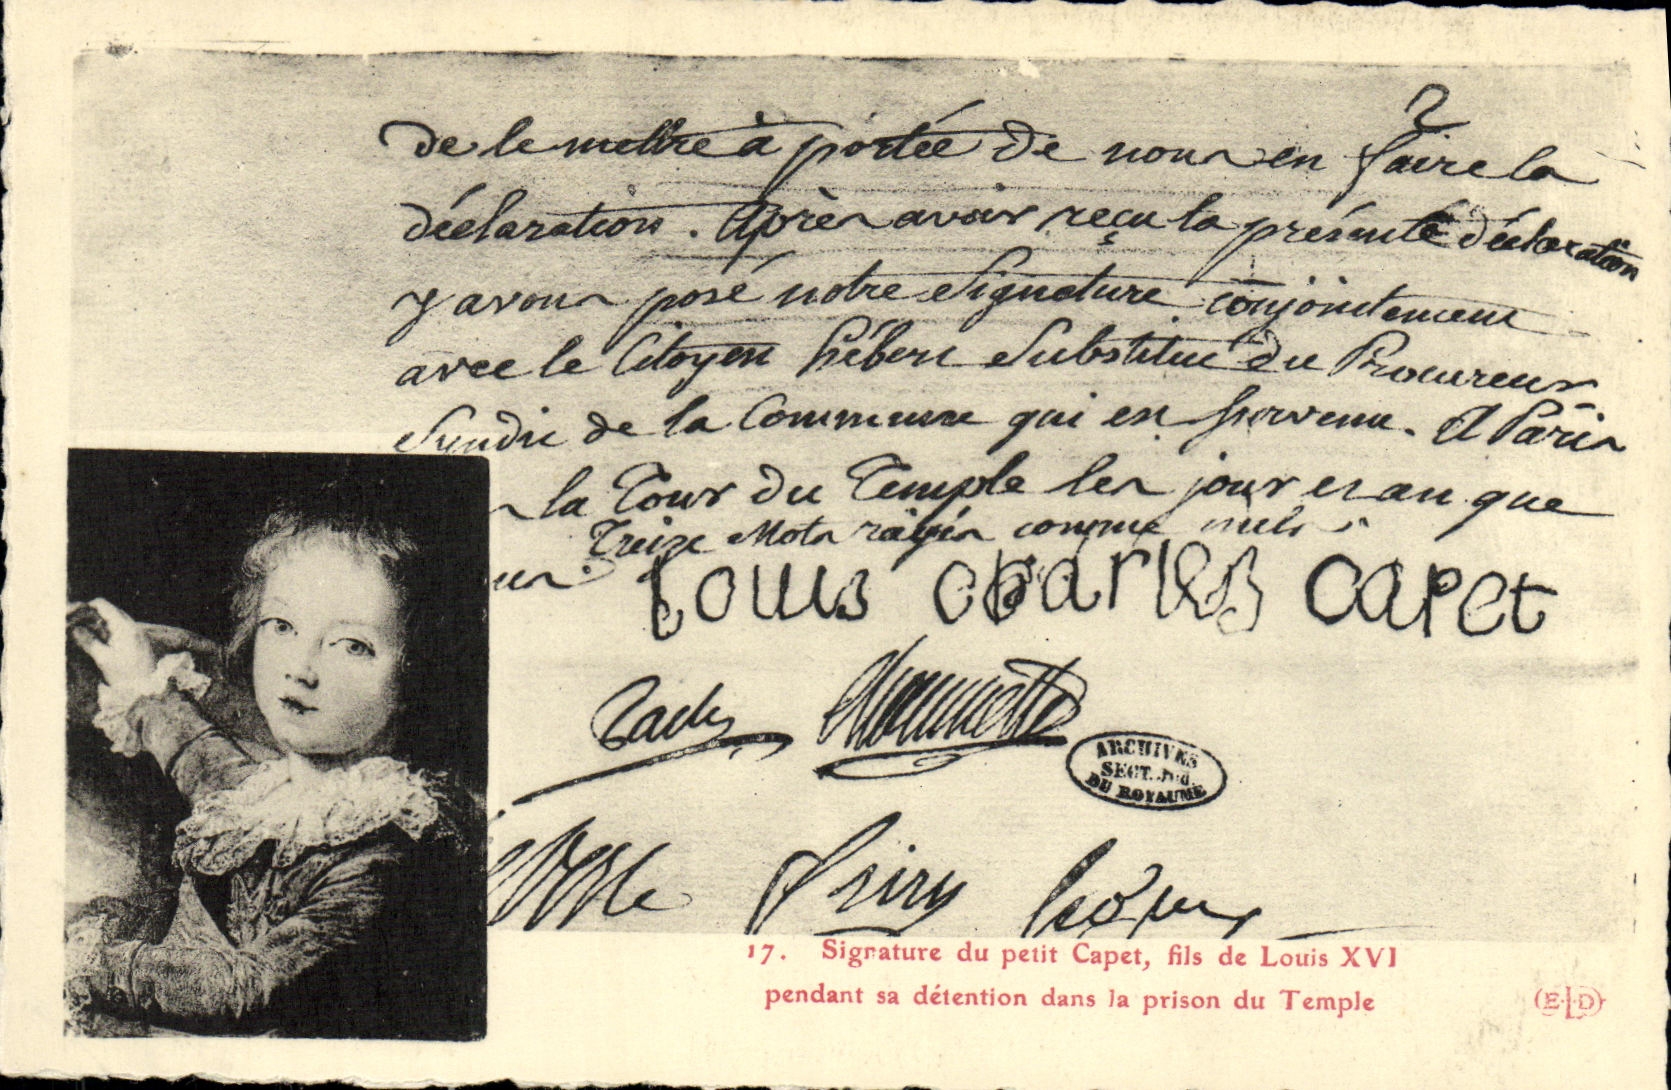 2
de le mettre à portée de nous en faire la
déclaration. Après avoir reçu la présente déclaration
y avons posé notre Signature conjointement
avec le Citoyen hébert Substitut du Procureur
Syndic de la Commune qui est survenu. A Paris
la Tour du Temple les jour et an que
Treize Mots rayés comme nuls
Louis Charles Capet
ARCHIVES
SECT. Jud.
DU ROYAUME
17. Signature du petit Capet, fils de Louis XVI
pendant sa détention dans la prison du Temple
E·L·D